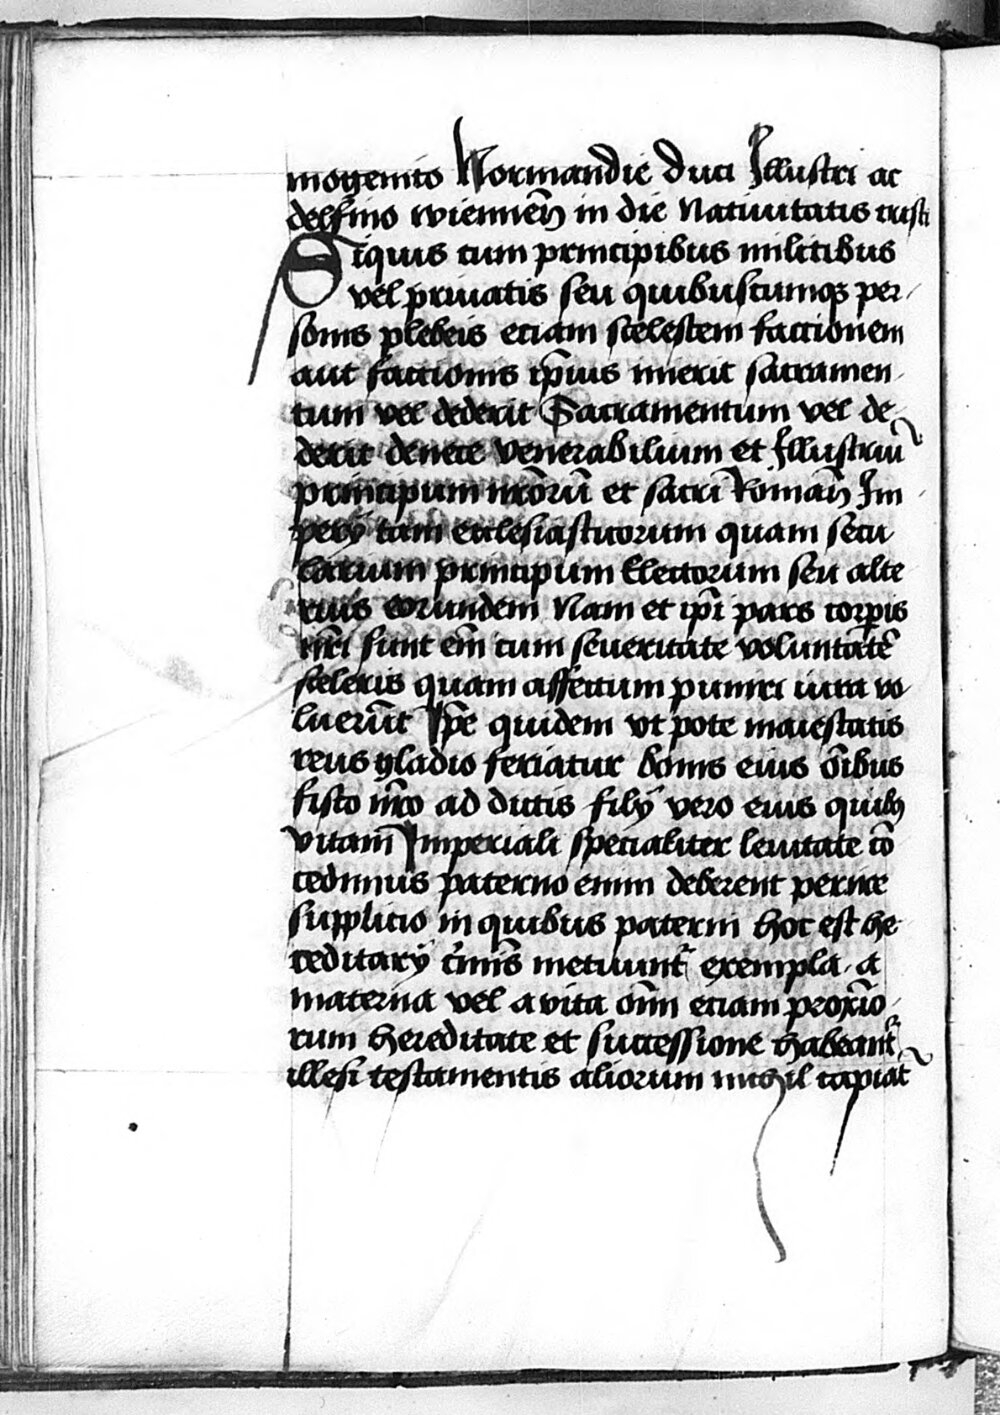 mogenito Normandie duci Illustri ac
delfino wiennen̄ in die Natiuitatis cristi
Siquis cum principibus militibus
vel priuatis seu quibuscumqꝫ per-
sonis plebeis etiam scelestem factionem
aut factionis ip̄ius inierit sacramen-
tum vel dederit Sacramentum vel de-
derit de nece venerabilium et Illustriū
principum nr̄orū et sacri Roman̄ Im-
perij tam ecclesiasticorum quam secu-
larium principum Electorum seu alte
rius eorundem Nam et ip̄i pars corꝑis
nr̄i sunt em̄ cum seueritate voluntatē
sceleris quam affectum puniri iura vo-
luerūt Ip̄e quidem vt pote maiestatis
reus gladio feriatur bonis eius oībus
fisco nr̄o ad dictis filij vero eius quibꝫ
vitam̄ Imperiali specialiter lenitate cō
cedimus paterno enim deberent perire
supplicio in quibus paterni hoc est he-
reditarij cr̄imīs metuunt᷑ exempla a
materna vel a vita om̄ etiam proxīo-
rum hereditate et successione habeant᷑
illesi testamentis aliorum nichil capiāt